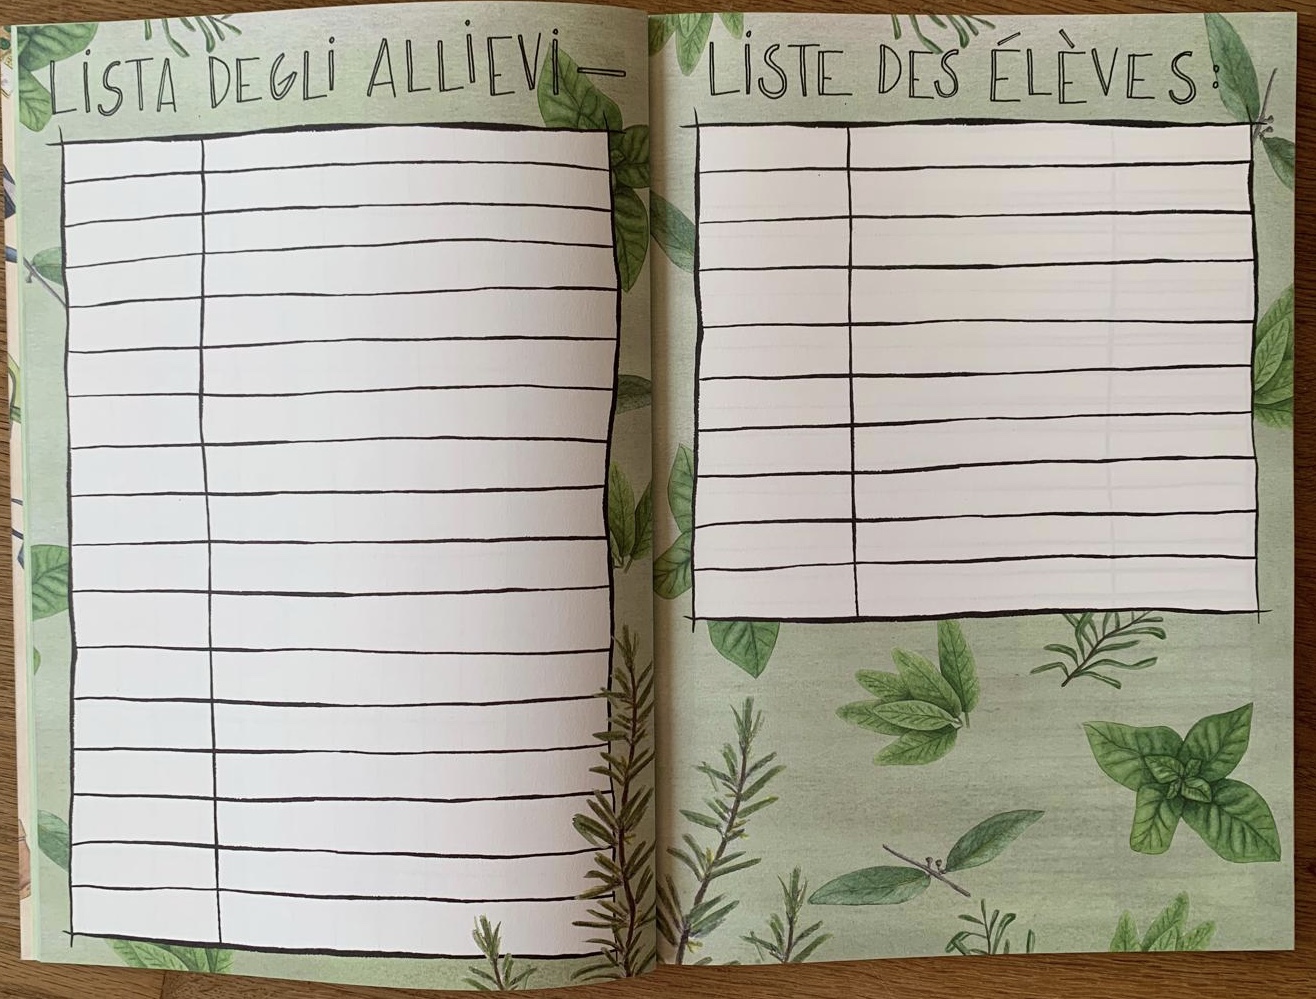 LISTA DEGLI ALLIEVI —
LISTE DES ÉLÈVES: